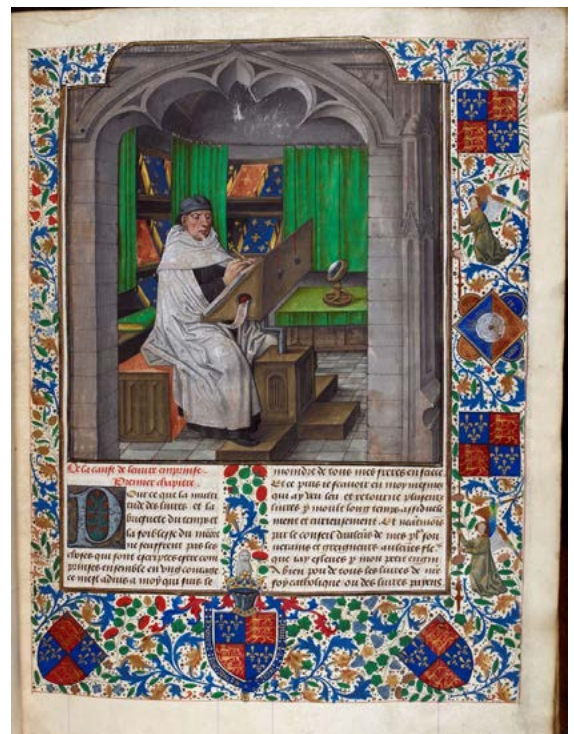 De la cause de leuure emprinse.
Premier chapitre.
Pour ce que la multi
tude des liures et la
briefuete du temps et
la foiblesse du
ne seuffrent pas les
choses qui sont escriptes estre com
prinses ensemble en vng courage
ce mest aduis a moy qui suis le
moindre de tous mes freres en
Et ce puis ie scauoir en moy mesmes
qui ay veu leu et retourne pluseurs
liures p moult long temps assiduele
ment et curieusement. Et neatmoins
par le conseil de mes sou
uerains et greigneurs
que iay esleues p mon petit engin
A bien pou de tous les liures de nre
foy catholique ou des liures payens